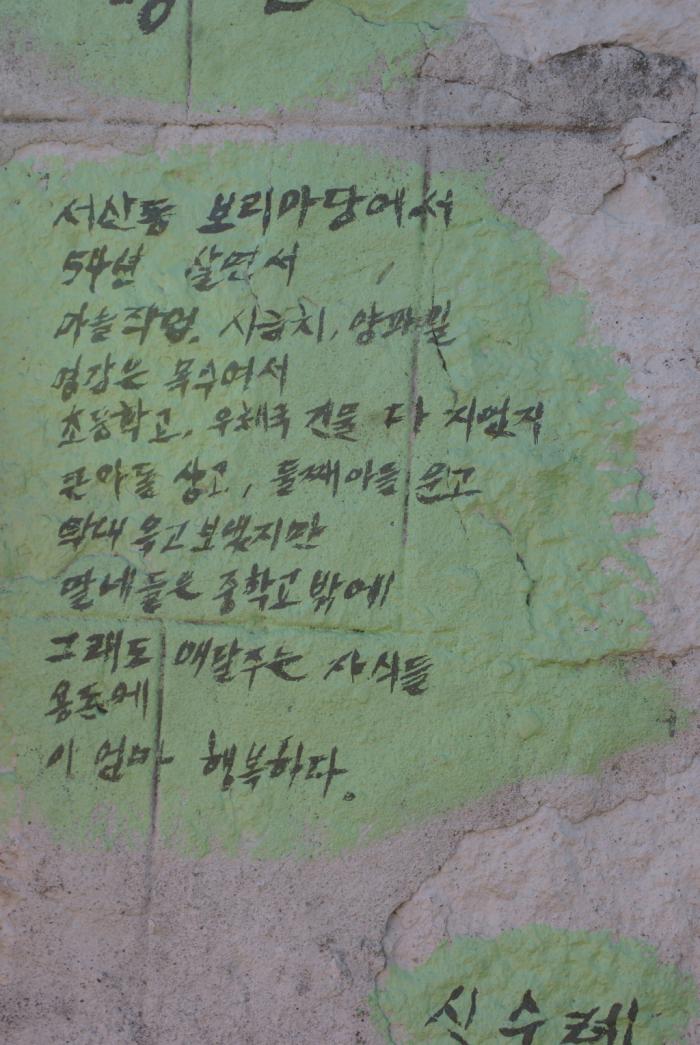 서산동 보리마당에서
54년 살면서
마늘작업, 시금치, 양파일
영감은 목수여서
초등학교, 우체국 건물 다 지었지
큰아들 상고, 둘째아들 문고
막내 목고보냈지만
딸네들은 중학교밖에
그래도 매달주는 자식들
용돈에
이 엄마 행복하다.
신수례